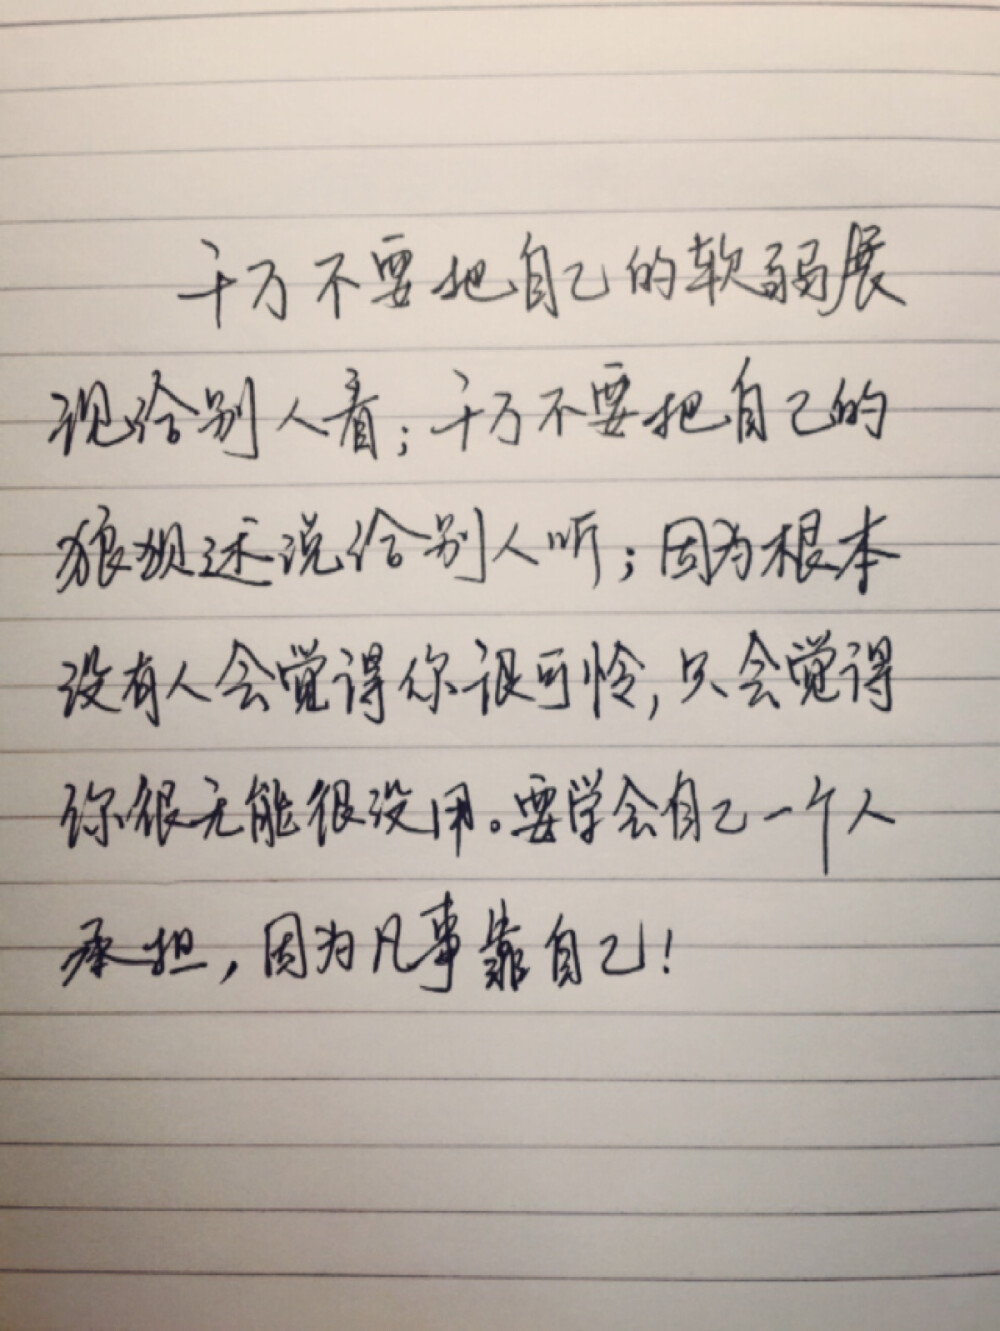 千万不要把自己的软弱展
现给别人看；千万不要把自己的
狼狈述说给别人听；因为根本
没有人会觉得你很可怜，只会觉得
你很无能很没用。要学会自己一个人
承担，因为凡事靠自己！